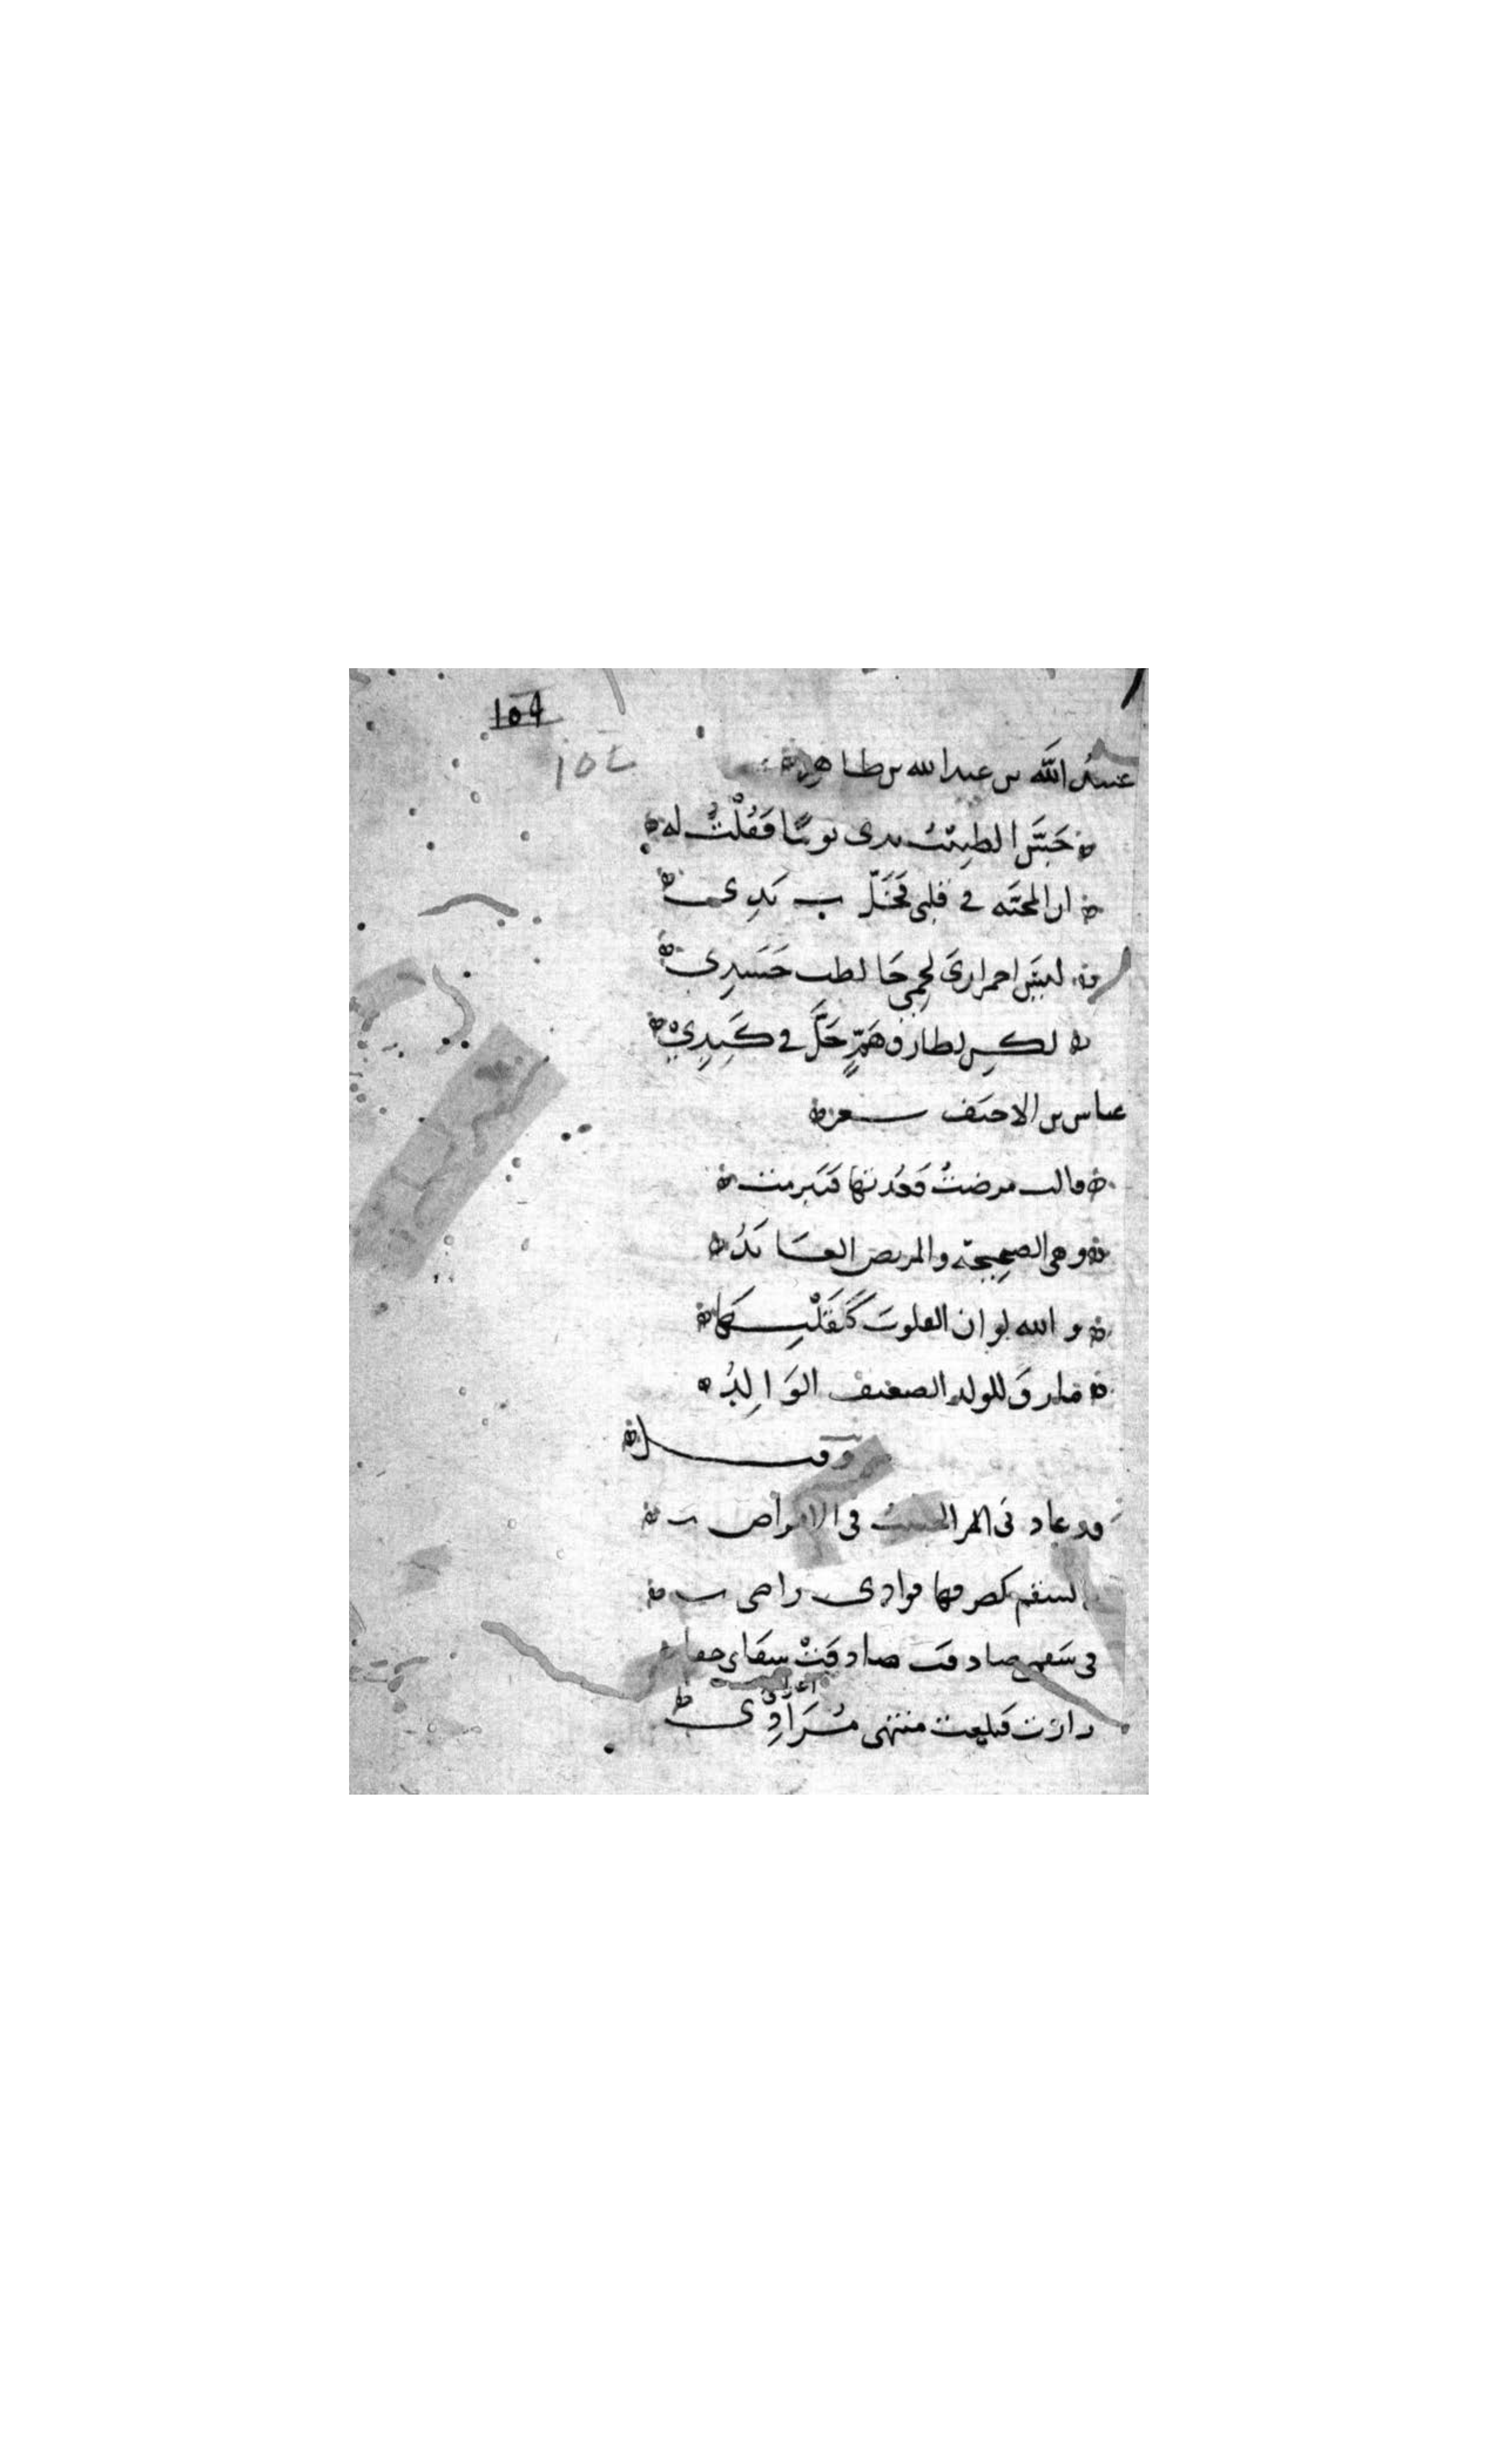 104
عبيد الله بن عبد الله بن طاهر
جَسَّ الطبيبُ يدي يومًا فَقُلْتُ له
ان المحبّه في قلبي فَخَلِّ يَدِي
ليس احمراري لحمى خالطت جَسَدِي
لكن لطارق هَمٍّ حَلَّ في كَبِدِي
عباس بن الاحنف شعر
قالت مرضتُ فَعُدتها فتبرمت
وهي الصحيحة والمريض العائدُ
والله لو ان القلوب كَقَلْبِها
ما رقَّ للولد الصغير الوالدُ
وقيل
قد عاد في الامراض
السقم فؤادي راضي
في سقمي صادفت شفاي
زارت فبلغت منتهى